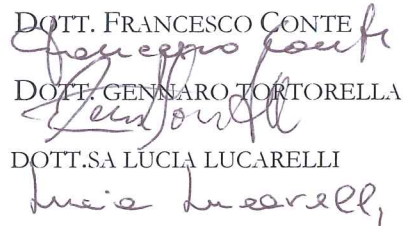 DOTT. FRANCESCO CONTE
Francesco Conte
DOTT. GENNARO TORTORELLA
DOTT.SA LUCIA LUCARELLI
Lucia Lucarelli,